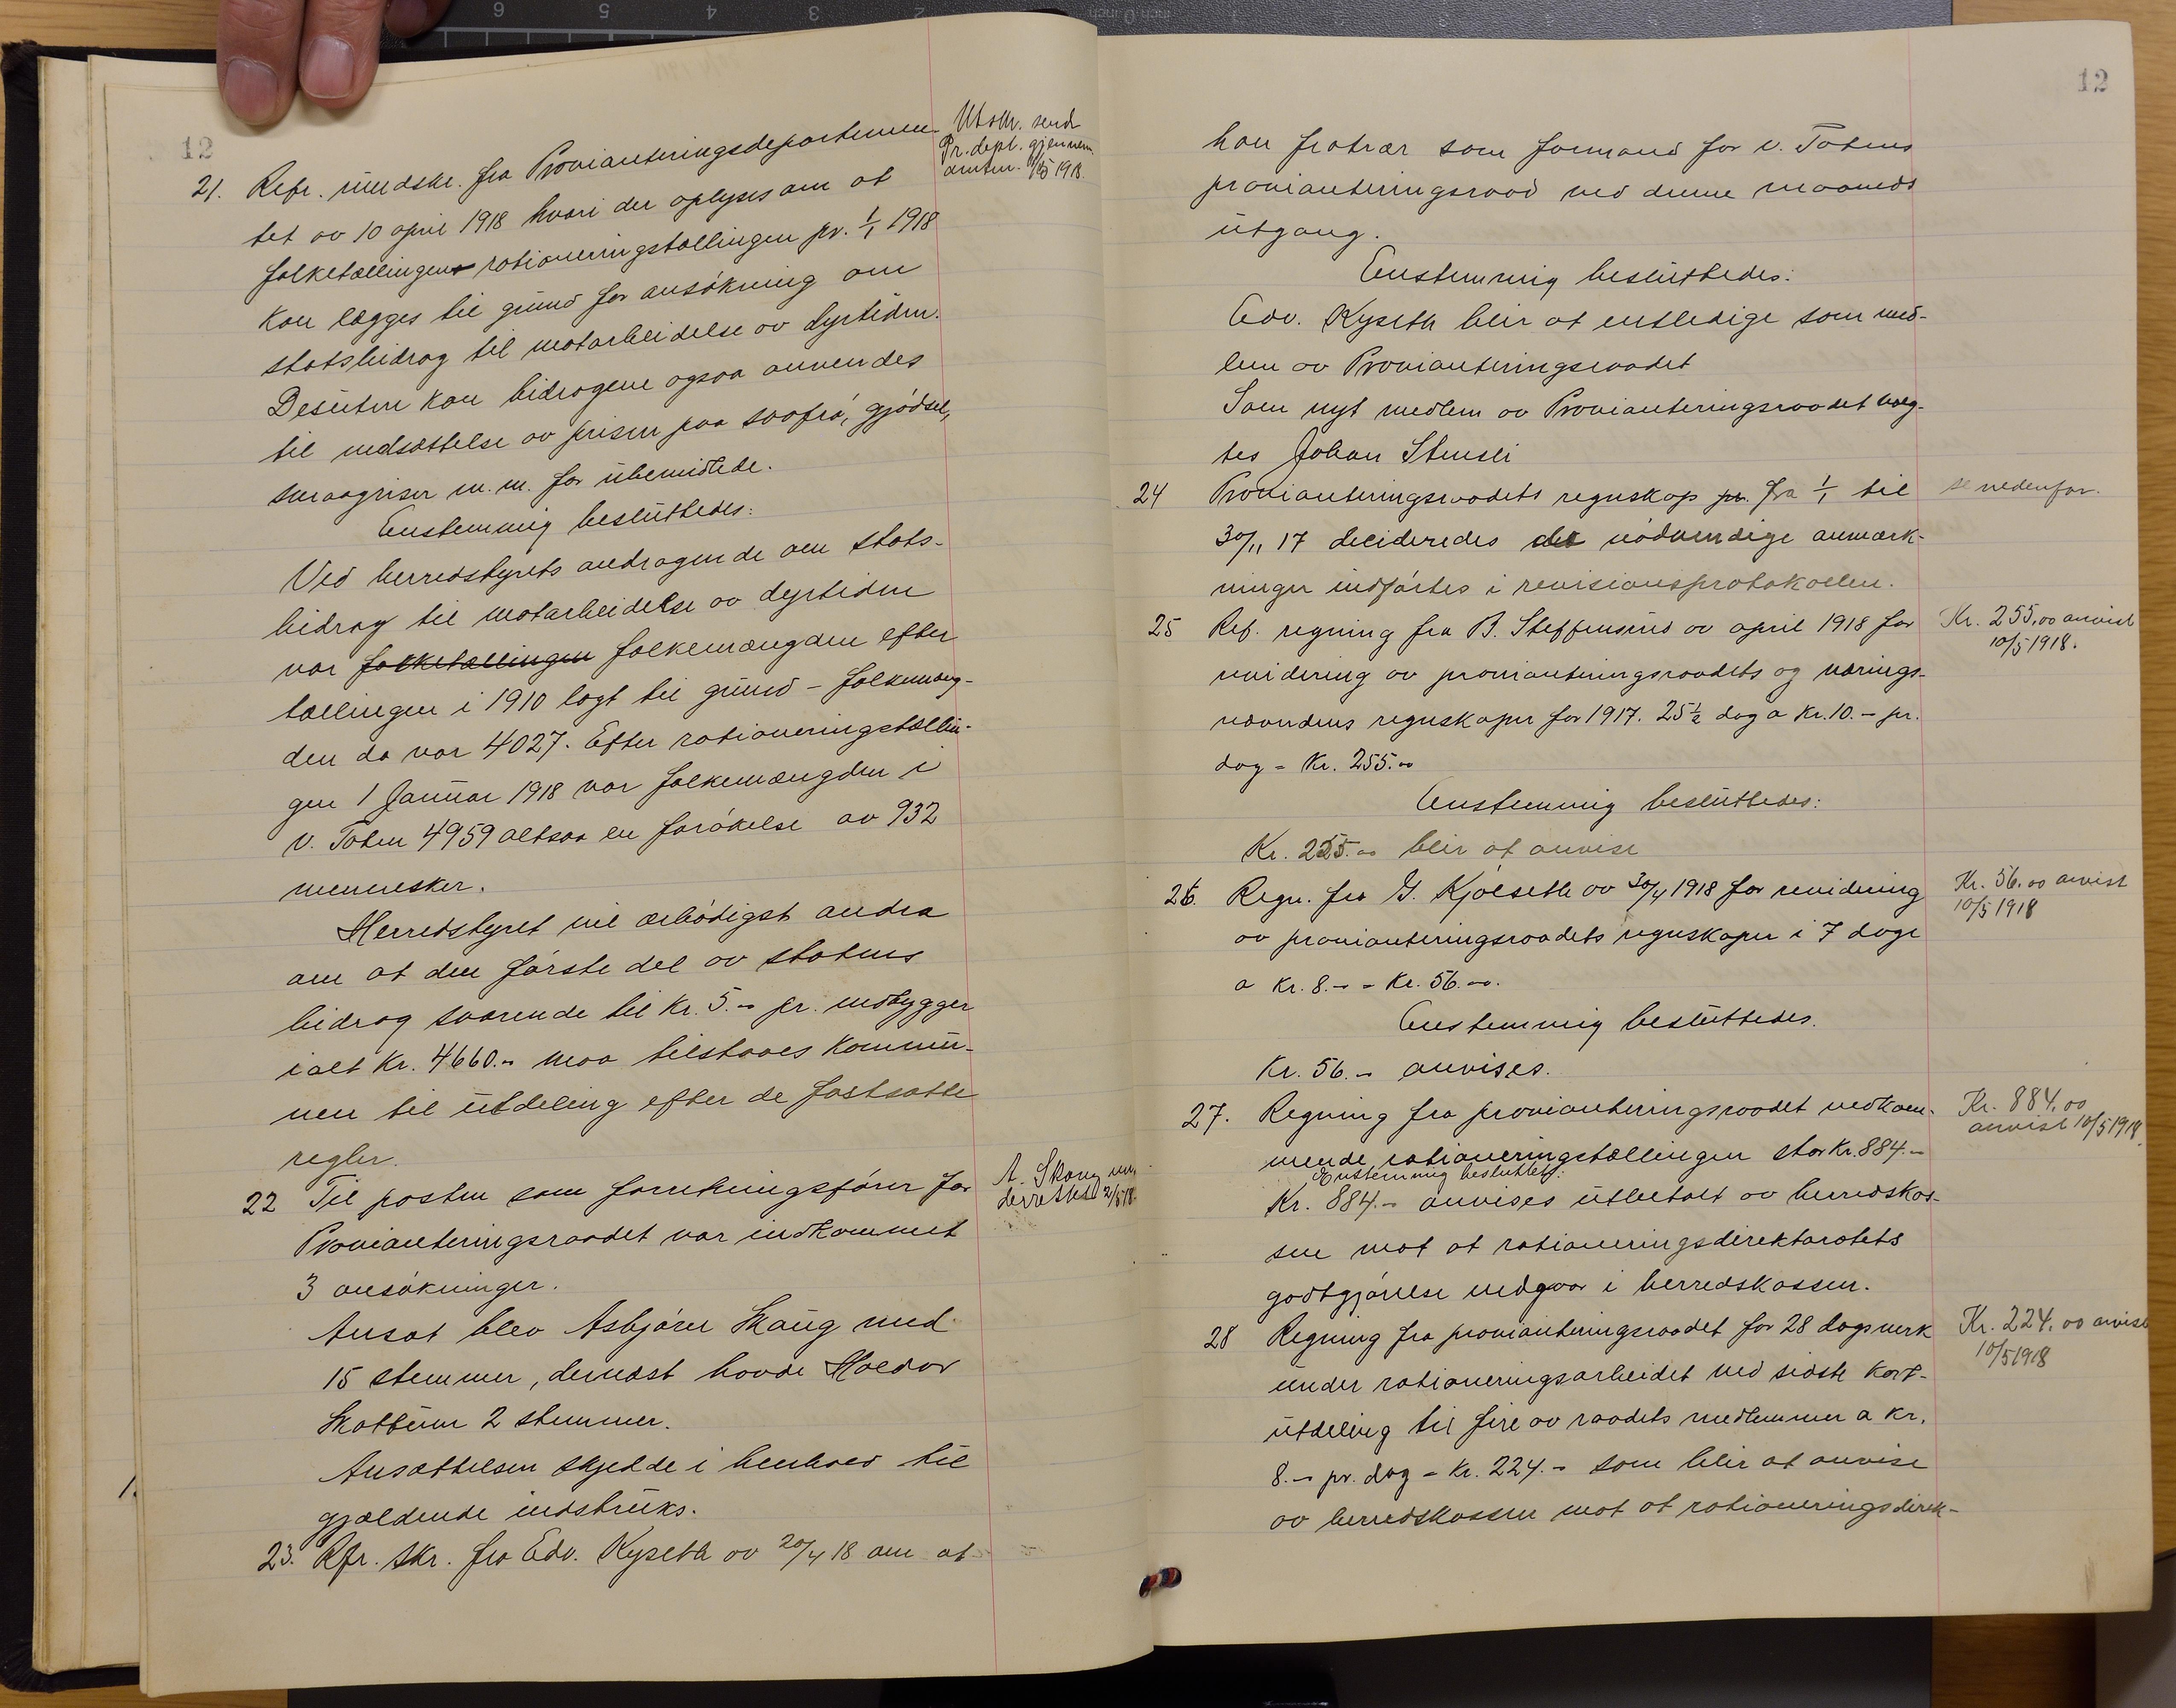 12
21. Refr. rundskr. fra Provianteringsdepartemen-
tet av 10 april 1918 hvori der oplyses om at
folketællingen rationeringstællingen pr. 1/1 1918
kan lægges til grund for ansökning om
statsbidrag til motarbeidelse av dyrtiden.
Desuten kan bidragene ogsaa anvendes
til nedsættelse av prisen paa saafrö, gjödsel,
smaagriser m.m. for ubemidlede.
Enstemmig besluttedes:
Ved herredstyrets andragende om stats-
bidrag til motarbeidelse av dyrtiden
var folketællingen folkemængden efter
tællingen i 1910 lagt til grund – folkemæng-
den da var 4027. Efter rationeringstællin-
gen 1 Januar 1918 var folkemængden i
V. Toten 4959 altsaa en forökelse av 932
mennesker.
Herredstyret vil ærbödigst andra
om at den förste del av statens
bidrag svarende til Kr. 5.– pr. indbygger
ialt Kr. 4660.– maa tilstaaes kommu-
nen til utdeling efter de fastsatte
regler.
22 Til posten som forretningsförer for
Provianteringsraadet var indkommet
3 ansökninger.
Ansat blev Asbjörn Skaug med
15 stemmer, dernæst havde Haldor
Skattum 2 stemmer.
Ansættelsen skjedde i henhold til
gjældende instruks.
23. Refr. skr. fra Edv. Kyseth av 20/4 18 om at
Utskr. sendt
Pr.dept. gjennem
amtm. 1/5 1918.
A. Skaug un-
derrettet 2/5 18.
12
han fratrær som formand for V. Totens
provianteringsraad ved denne maaneds
utgang.
Enstemmig besluttedes:
Edv. Kyseth blir at entledige som med-
lem av Provianteringsraadet
Som nyt medlem av Provianteringsraadet valg-
tes Johan Stensli
24 Provianteringsraadets regnskap pr. fra 1/1 til
30/11 17 decideredes de nödvendige anmærk-
ninger indförtes i revisionsprotokollen.
se nedenfor.
25 Ref. regning fra B. Steffensrud av april 1918 for
revidering av provianteringsraadets og nærings-
nævndens regnskaper for 1917. 25 1/2 dag a Kr. 10.– pr.
dag = Kr. 255.00
Enstemmig besluttedes:
Kr. 255.00 blir at anvise
Kr. 255,00 anvist
10/5 1918.
26. Regn. fra G. Kjölseth av 30/4 1918 for revidering
av provianteringsraadets regnskaper i 7 dage
a kr. 8.– = Kr. 56.00.
Enstemmig besluttedes.
Kr. 56.– anvises.
Kr. 56.00 anvist
10/5 1918
27. Regning fra provianteringsraadet vedkom-
mende rationeringstællingen stor Kr. 884.–
Enstemmig besluttedes:
Kr. 884.– anvises utbetalt av herredskas-
sen mot at rationeringsdirektoratets
godtgjörelse indgaar i herredskassen.
Kr. 884,00
anvist 10/5 1918.
28 Regning fra provianteringsraadet for 28 dagsverk
under rationeringsarbeidet ved sidste kort-
utdeling til fire av raadets medlemmer a kr.
8.– pr. dag = Kr. 224.– som blir at anvise
av herredskassen mot at rationeringsdirek-
Kr. 224,00 anvist
10/5 1918